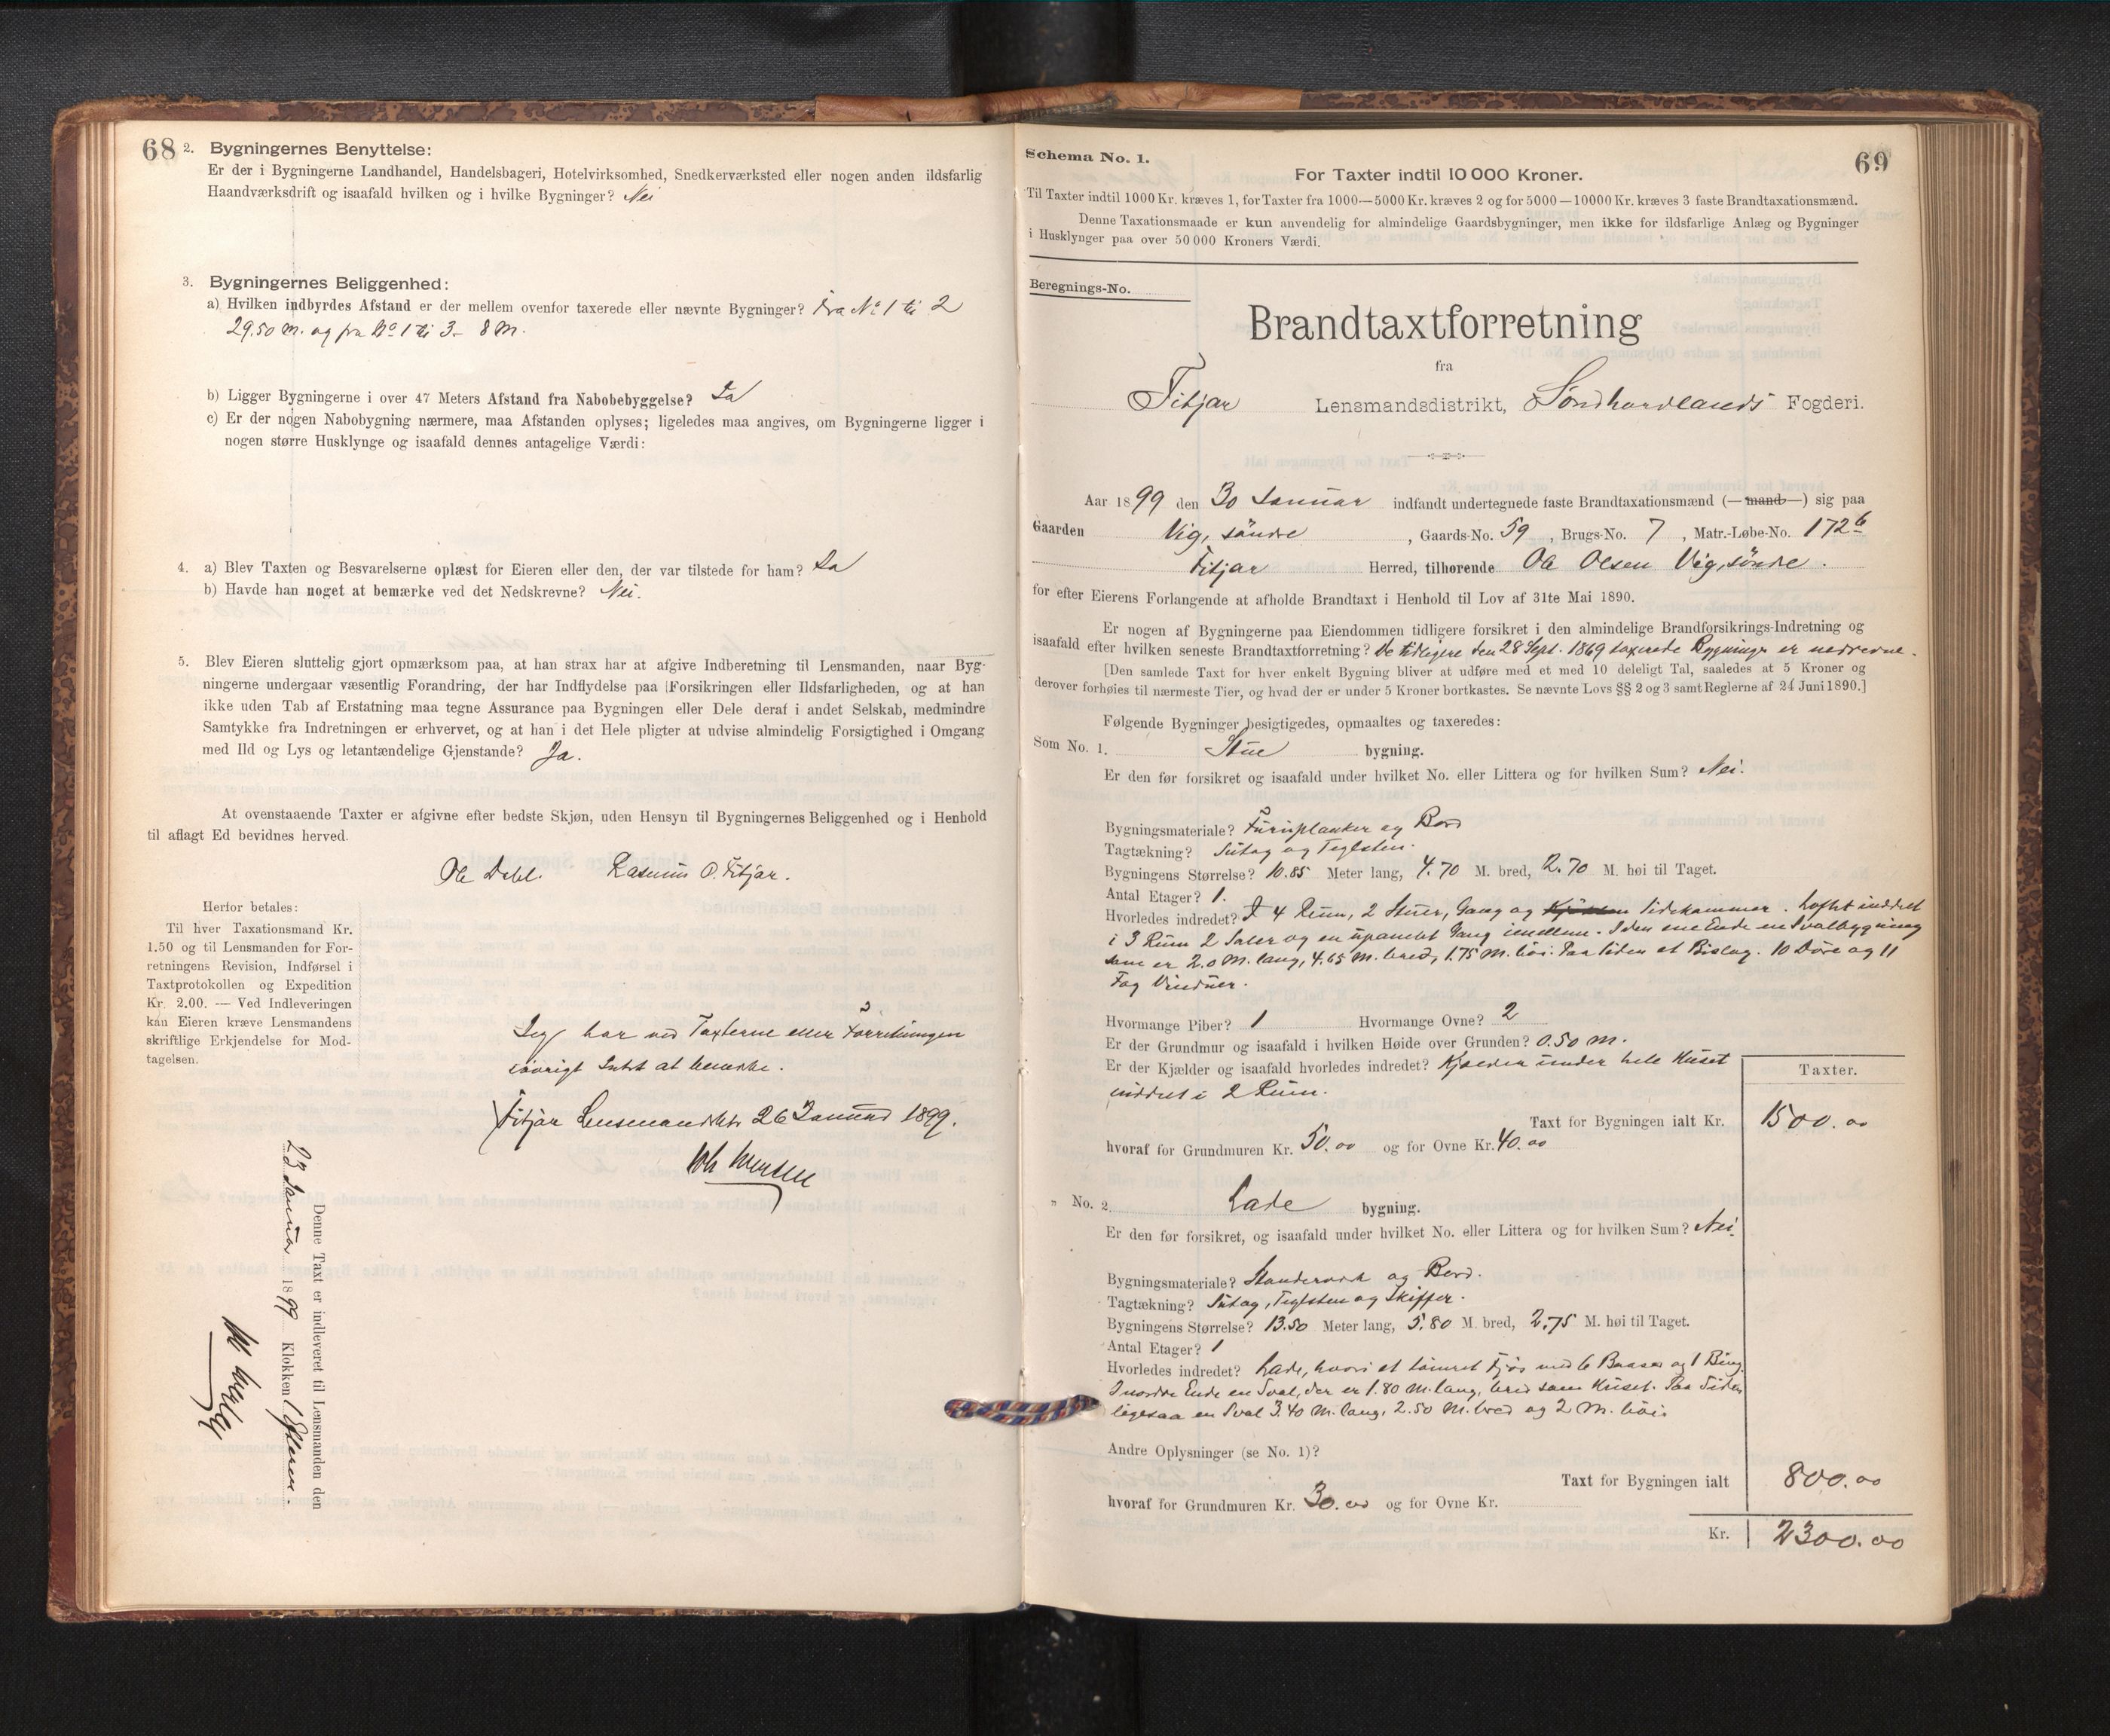 68
2. Bygningernes Benyttelse:
Er der i Bygningerne Landhandel, Handelsbageri, Hotelvirksomhed, Snedkerværksted eller nogen anden ildsfarlig
Haandværksdrift og isaafald hvilken og i hvilke Bygninger? Nei
3. Bygningernes Beliggenhed:
a) Hvilken indbyrdes Afstand er der mellem ovenfor taxerede eller nævnte Bygninger? Fra No 1 til 2
29.50 M. og fra No 1 til 3 - 8 M.
b) Ligger Bygningerne i over 47 Meters Afstand fra Nabobebyggelse? Ja
c) Er der nogen Nabobygning nærmere, maa Afstanden oplyses; ligeledes maa angives, om Bygningerne ligger i
nogen større Husklynge og isaafald dennes antagelige Værdi:
4. a) Blev Taxten og Besvarelserne oplæst for Eieren eller den, der var tilstede for ham? Ja
b) Havde han noget at bemærke ved det Nedskrevne? Nei.
5. Blev Eieren sluttelig gjort opmærksom paa, at han strax har at afgive Indberetning til Lensmanden, naar Byg-
ningerne undergaar væsentlig Forandring, der har Indflydelse paa Forsikringen eller Ildsfarligheden, og at han
ikke uden Tab af Erstatning maa tegne Assurance paa Bygningen eller Dele deraf i andet Selskab, medmindre
Samtykke fra Indretningen er erhvervet, og at han i det Hele pligter at udvise almindelig Forsigtighed i Omgang
med Ild og Lys og letantændelige Gjenstande? Ja.
At ovenstaaende Taxter er afgivne efter bedste Skjøn, uden Hensyn til Bygningernes Beliggenhed og i Henhold
til aflagt Ed bevidnes herved.
Ole Dahl. Rasmus O. Fitjar.
Herfor betales:
Til hver Taxationsmand Kr.
1.50 og til Lensmanden for For-
retningens Revision, Indførsel i
Taxtprotokollen og Expedition
Kr. 2.00. — Ved Indleveringen
kan Eieren kræve Lensmandens
skriftlige Erkjendelse for Mod-
tagelsen.
Jeg har ved Taxterne eller Forretningen
iøvrigt Intet at bemærke.
Fitjar Lensmandsktr 26 Januar 1899.
Denne Taxt er indleveret til Lensmanden den
23 Januar 1899 Klokken 1 Efterm.
69
Schema No. 1.
For Taxter indtil 10 000 Kroner.
Til Taxter indtil 1000 Kr. kræves 1, for Taxter fra 1000—5000 Kr. kræves 2 og for 5000—10000 Kr. kræves 3 faste Brandtaxationsmænd.
Denne Taxationsmaade er kun anvendelig for almindelige Gaardsbygninger, men ikke for ildsfarlige Anlæg og Bygninger
i Husklynger paa over 50 000 Kroners Værdi.
Beregnings-No.
Brandtaxtforretning
fra
Fitjar Lensmandsdistrikt, Søndhordlands Fogderi.
Aar 1899 den 30 Januar indfandt undertegnede faste Brandtaxationsmænd (—mand—) sig paa
Gaarden Vig, søndre, Gaards-No. 59, Brugs-No. 7, Matr.-Løbe-No. 172b
Fitjar Herred, tilhørende Ole Olsen Vig, søndre.
for efter Eierens Forlangende at afholde Brandtaxt i Henhold til Lov af 31te Mai 1890.
Er nogen af Bygningerne paa Eiendommen tidligere forsikret i den almindelige Brandforsikrings-Indretning og
isaafald efter hvilken seneste Brandtaxtforretning? De tidligere den 28 Sept. 1869 taxerede Bygninger er nedrevne.
[Den samlede Taxt for hver enkelt Bygning bliver at udføre med et med 10 deleligt Tal, saaledes at 5 Kroner og
derover forhøies til nærmeste Tier, og hvad der er under 5 Kroner bortkastes. Se nævnte Lovs §§ 2 og 3 samt Reglerne af 24 Juni 1890.]
Følgende Bygninger besigtigedes, opmaaltes og taxeredes:
Som No. 1. Stue bygning.
Er den før forsikret og isaafald under hvilket No. eller Littera og for hvilken Sum? Nei.
Bygningsmateriale? Furuplanker og Bord
Tagtækning? Sutag og Teglsten.
Bygningens Størrelse? 10.85 Meter lang, 4.70 M. bred, 2.70 M. høi til Taget.
Antal Etager? 1.
Hvorledes indredet? I 4 Rum, 2 Stuer, Gang og Kjøkken Sidekammer. Loftet inddelt
i 3 Rum 2 Saler og en upanelet Gang imellem. I den ene Ende en Svalbygning
som er 2.0 M. lang, 4.65 M. bred, 1.75 M. høi. Paa Siden et Bislag. 10 Døre og 11
Fag Vinduer.
Hvormange Piber? 1 Hvormange Ovne? 2
Er der Grundmur og isaafald i hvilken Høide over Grunden? 0.50 M.
Er der Kjælder og isaafald hvorledes indredet? Kjælder under hele Huset
inddelt i 2 Rum.
Taxter.
Taxt for Bygningen ialt Kr. 1500.00
hvoraf for Grundmuren Kr. 50.00 og for Ovne Kr. 40.00
" No. 2. Lade bygning.
Er den før forsikret, og isaafald under hvilket No. eller Littera og for hvilken Sum? Nei.
Bygningsmateriale? Standerværk og Bord.
Tagtækning? Sutag, Teglsten og Skiffer.
Bygningens Størrelse? 13.50 Meter lang, 5.80 M. bred, 2.75 M. høi til Taget.
Antal Etager? 1
Hvorledes indredet? Lade, hvori et tømret Fjøs med 6 Baaser og 1 Bing.
I nordre Ende en Sval, der er 1.80 M. lang, bred som Huset. Paa Siden
ligesaa en Sval 3.40 M. lang, 2.50 M. bred og 2 M. høi.
Andre Oplysninger (se No. 1)?
Taxt for Bygningen ialt 800.00
hvoraf for Grundmuren Kr. 30.00 og for Ovne Kr.
Kr. 2300.00